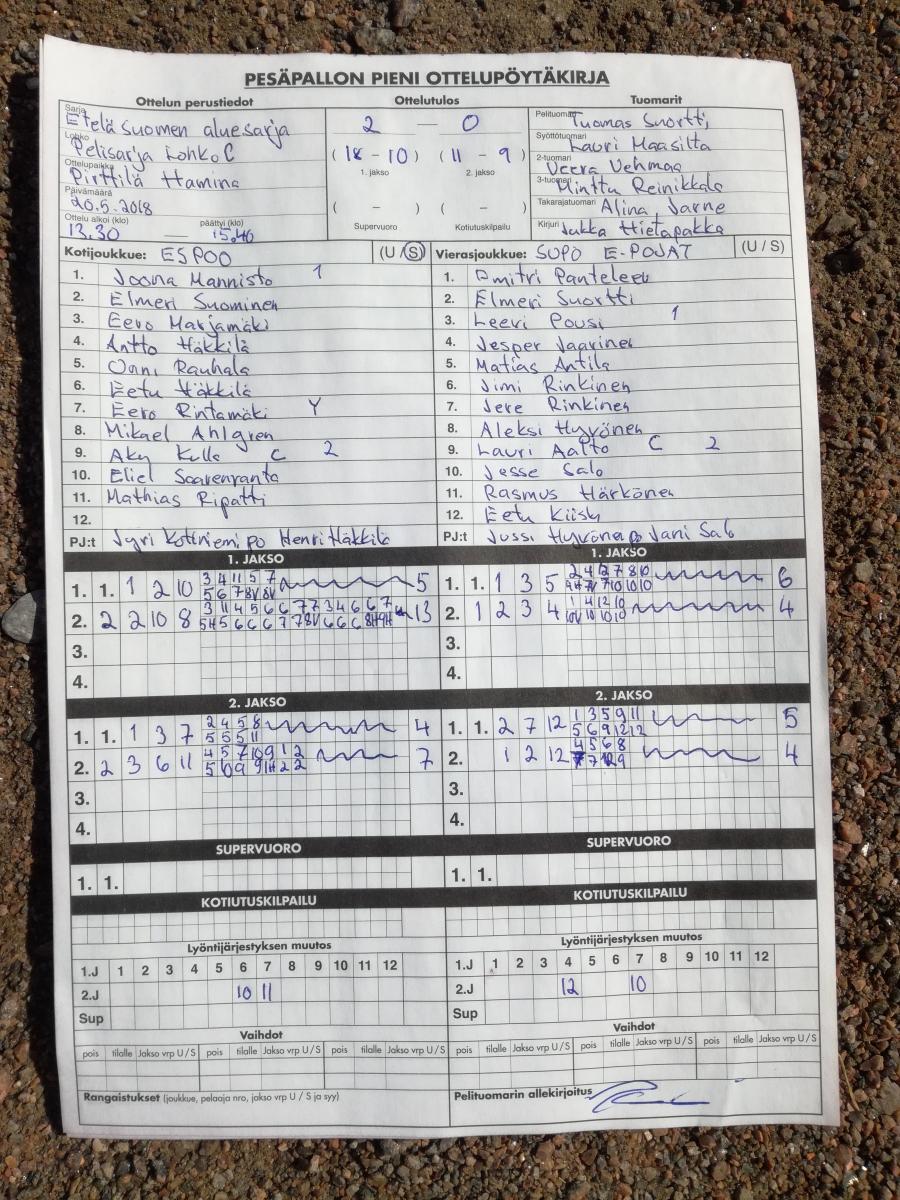 PESÄPALLON PIENI OTTELUPÖYTÄKIRJA
Ottelun perustiedot Ottelutulos Tuomarit
Sarja Etelä Suomen aluesarja 2 — 0 Pelituomari Tuomas Suortti
Lohko Pelisarja Lohko C ( 18 - 10 ) ( 11 - 9 ) Syöttötuomari Lauri Maasilta
1. jakso 2. jakso 2-tuomari Veera Vehmaa
Ottelupaikka Pirttilä Hamina 3-tuomari Minttu Reinikkala
Päivämäärä 20.5.2018 ( - ) ( - ) Takarajatuomari Alina Jarne
Ottelu alkoi (klo) 13.30 — päättyi (klo) 15.40 Supervuoro Kotiutuskilpailu Kirjuri Jukka Hietapakka
Kotijoukkue: ESPOO (U / S) Vierasjoukkue: SUPO E-POJAT (U / S)
1. Joona Mannisto 1 1. Dmitri Panteleev
2. Elmeri Suominen 2. Elmeri Suortti
3. Eero Marjamäki 3. Leevi Pousi 1
4. Antto Häkkilä 4. Jesper Jaarinen
5. Onni Rauhala 5. Matias Antila
6. Eetu Häkkilä 6. Jimi Rinkinen
7. Eero Rintamäki Y 7. Jere Rinkinen
8. Mikael Ahlgren 8. Aleksi Hyvönen
9. Aky Kulle C 2 9. Lauri Aalto C 2
10. Eliel Saarenranta 10. Jesse Salo
11. Mathias Ripatti 11. Rasmus Härkönen
12. 12. Eetu Kiisk
PJ:t Jyri Kottniemi po Henri Häkkilä PJ:t Jussi Hyvönen po Jani Salo
1. JAKSO 1. JAKSO
1. 1. 1 2 10 3 4 11 5 7 5 1. 1. 1 3 5 2 4 12 7 8 10 6
5 6 7 8V 8V
2. 2 2 10 8 3 11 4 5 6 6 7 7 3 4 6 6 7 13 2. 1 2 3 4 1 4 12 10 4
5H 5 6 6 6 7 7 8V 6 6 6 8H 9H 10V 10 10 10
3. 3.
4. 4.
2. JAKSO 2. JAKSO
1. 1. 1 3 7 2 4 5 8 4 1. 1. 2 7 12 1 3 5 9 11 5
5 5 5 11 5 6 9 12 12
2. 2 3 6 11 4 5 7 10 9 1 2 7 2. 1 2 12 4 5 6 8 4
3. 3.
4. 4.
SUPERVUORO SUPERVUORO
1. 1. 1. 1.
KOTIUTUSKILPAILU KOTIUTUSKILPAILU
Lyöntijärjestyksen muutos Lyöntijärjestyksen muutos
1.J 1 2 3 4 5 6 7 8 9 10 11 12 1.J 1 2 3 4 5 6 7 8 9 10 11 12
2.J 10 11 2.J 12 10
Sup Sup
Vaihdot Vaihdot
pois tilalle Jakso vrp U / S pois tilalle Jakso vrp U / S pois tilalle Jakso vrp U / S pois tilalle Jakso vrp U / S pois tilalle Jakso vrp U / S pois tilalle Jakso vrp U / S
Rangaistukset (joukkue, pelaaja nro, jakso vrp U / S ja syy) Pelituomarin allekirjoitus